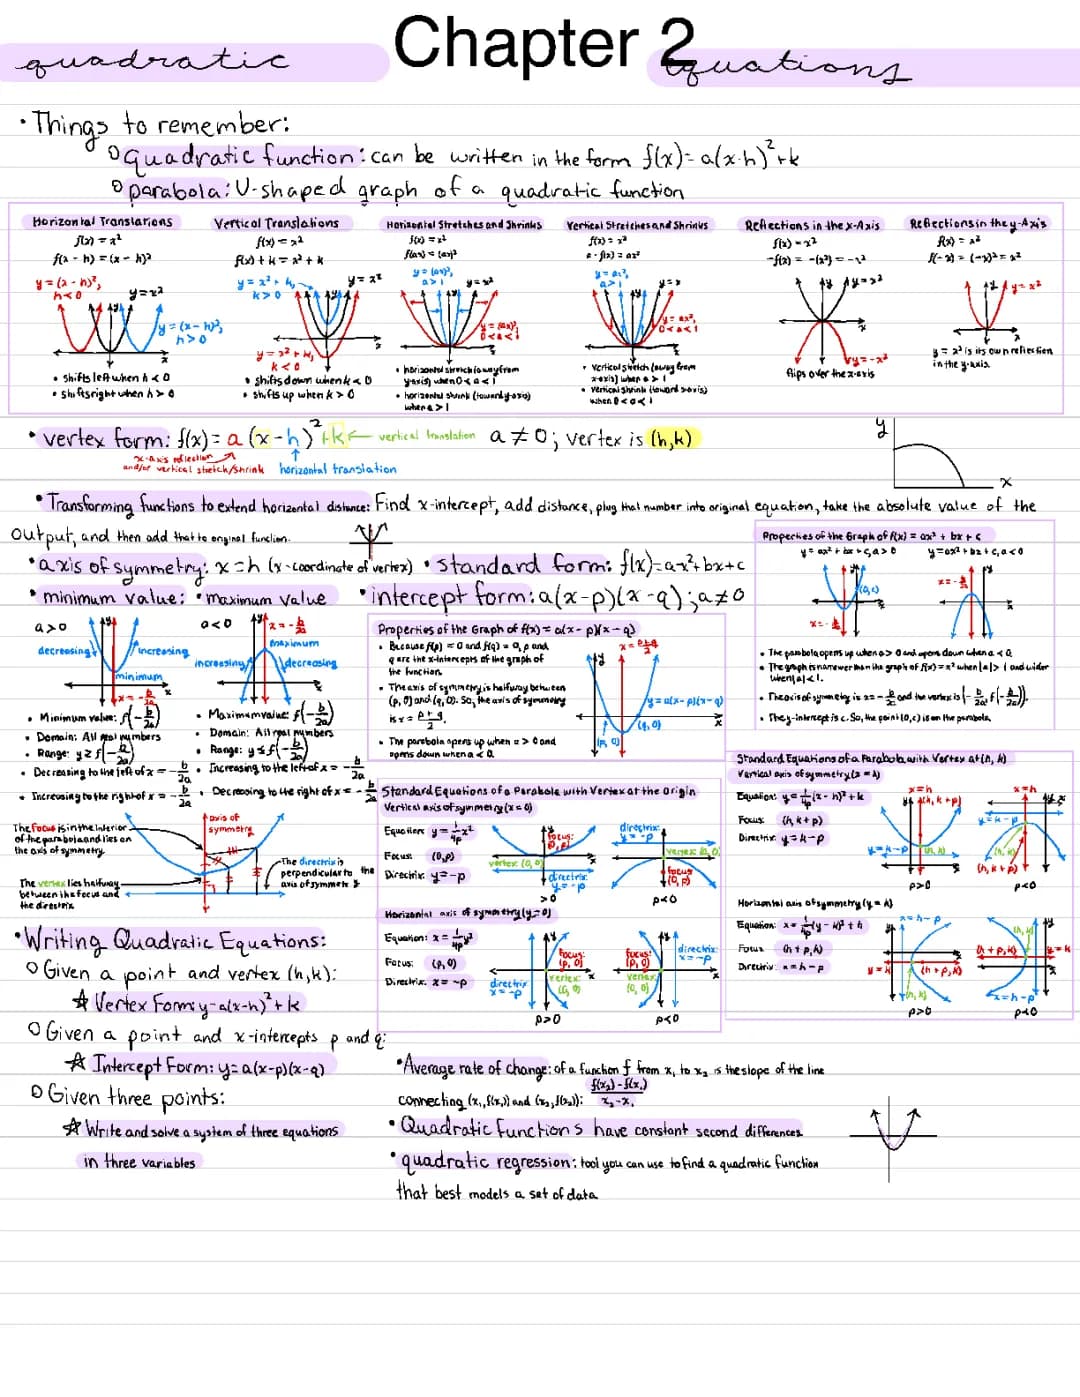 Chapter 2
quadratic equations
• Things to remember:
quadratic function: can be written in the form f(x)= a(x-h)²+k
parabola: U-shaped graph of a quadratic function
Horizontal Translations
f(x) = x²
f(x - h) = (x - h)²
y = (x - h)², h<0
y=x²
y = (x - h)², h>0
• shifts left when h < 0
• shifts right when h > 0
Vertical Translations
f(x) = x²
f(x) + k = x² + k
y = x² + k, k>0
y = x²
y = x² + k, k<0
• shifts down when k < 0
• shifts up when k > 0
Horizontal Stretches and Shrinks
f(x) = x²
f(ax) = (ax)²
y = (ax)², a>1
y = x²
y = (ax)², 0<a<1
• horizontal stretch (away from y-axis) when 0 < a < 1
• horizontal shrink (toward y-axis) when a > 1
Vertical Stretches and Shrinks
f(x) = x²
a · f(x) = ax²
y = ax², a>1
y = ax², 0<a<1
• vertical stretch (away from x-axis) when a > 1
• vertical shrink (toward x-axis) when 0 < a < 1
Reflections in the x-Axis
f(x) = x²
-f(x) = -(x²) = -x²
y=x²
y=-x²
flips over the x-axis
Reflections in the y-Axis
f(x) = x²
f(-x) = (-x)² = x²
y = x²
y = x² is its own reflection in the y-axis.
• vertex form: f(x)= a (x-h)²+k ← vertical translation a≠0; vertex is (h,k)
x-axis reflection and/or vertical stretch/shrink
horizontal translation
y
x
• Transforming functions to extend horizontal distance: Find x-intercept, add distance, plug that number into original equation, take the absolute value of the
output, and then add that to original function.
• axis of symmetry: x=h (x-coordinate of vertex) • standard form: f(x)=ax²+bx+c
• minimum value: • maximum value • intercept form: a(x-p)(x-q); a≠0
a>0
decreasing
increasing
minimum
x=-b/2a
• Minimum value: f(-b/2a)
• Domain: All real numbers
• Range: y ≥ f(-b/2a)
• Decreasing to the left of x = -b/2a
• Increasing to the right of x = -b/2a
a<0
x=-b/2a
maximum
increasing
decreasing
• Maximum value: f(-b/2a)
• Domain: All real numbers
• Range: y ≤ f(-b/2a)
• Increasing to the left of x = -b/2a
• Decreasing to the right of x = -b/2a
Properties of the Graph of f(x) = a(x - p)(x - q)
• Because f(p) = 0 and f(q) = 0, p and
q are the x-intercepts of the graph of
the function.
• The axis of symmetry is halfway between
(p, 0) and (q, 0). So, the axis of symmetry
is x = p+q/2.
• The parabola opens up when a > 0 and
opens down when a < 0.
x = p+q/2
y = a(x-p)(x-q)
(q, 0)
(p, 0)
Properties of the Graph of f(x) = ax² + bx + c
y = ax² + bx + c, a > 0
y = ax² + bx + c, a < 0
(0,c)
x=-b/2a
x=-b/2a
• The parabola opens up when a > 0 and opens down when a < 0.
• The graph is narrower than the graph of f(x) = x² when |a| > 1 and wider
when |a| < 1.
• The axis of symmetry is x = -b/2a and the vertex is (-b/2a, f(-b/2a)).
• The y-intercept is c. So, the point (0, c) is on the parabola.
The focus is in the interior
of the parabola and lies on
the axis of symmetry.
The vertex lies halfway
between the focus and
the directrix
axis of symmetry
The directrix is
perpendicular to the
axis of symmetry
Standard Equations of a Parabola with Vertex at the Origin
Vertical axis of symmetry (x = 0)
Equation: y = 1/4p x²
Focus: (0,p)
Directrix: y=-p
focus: (0, p)
vertex: (0, 0)
directrix: y = -p
>0
directrix: y = -p
vertex: (0, 0)
focus: (0, p)
p<0
Horizontal axis of symmetry (y = 0)
Equation: x = 1/4p y²
Focus: (p, 0)
Directrix: x = -p
directrix: x = -p
focus: (p, 0)
vertex: (0, 0)
p>0
focus: (p, 0)
vertex: (0, 0)
directrix: x = -p
p<0
Standard Equations of a Parabola with Vertex at (h, k)
Vertical axis of symmetry (x = h)
Equation: y = 1/4p (x - h)² + k
Focus: (h, k + p)
Directrix: y = k - p
x=h
(h, k + p)
y = k - p
(h, k)
p>0
x=h
y = k - p
(h, k)
(h, k + p)
p<0
Horizontal axis of symmetry (y = k)
Equation: x = 1/4p (y - k)² + h
Focus: (h + p, k)
Directrix: x = h - p
x = h - p
y = k
(h + p, k)
(h, k)
p>0
(h, k)
(h + p, k)
y = k
x = h - p
p<0
• Writing Quadratic Equations:
Given a point and vertex (h,k):
Vertex Form: y=a(x-h)²+k
Given a point and x-intercepts p and q:
Intercept Form: y=a(x-p)(x-q)
Given three points:
Write and solve a system of three equations
in three variables
• Average rate of change: of a function f from x₁ to x₂ is the slope of the line
connecting (x₁, f(x₁)) and (x₂, f(x₂)): f(x₂) - f(x₁)/x₂ - x₁
• Quadratic functions have constant second differences
• quadratic regression: tool you can use to find a quadratic function
that best models a set of data